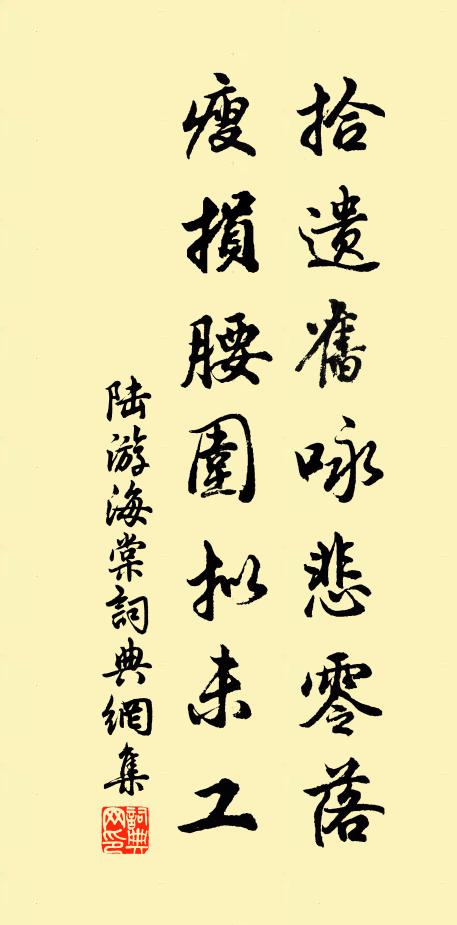 拾遗舊咏悲零落
瘦損腰圍拟未工
陆游海棠詞典網集
詞典网印